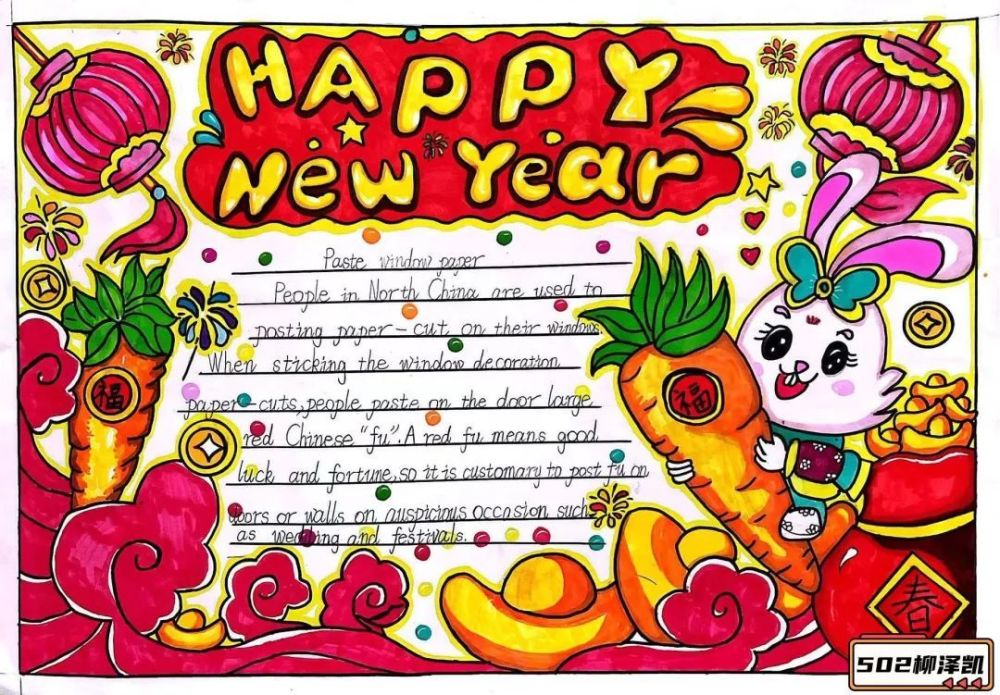 HAPPY
New Year
Paste window paper
People in North China are used to
posting paper-cut on their windows.
When sticking the window decoration
paper-cuts, people paste on the door large
red Chinese "fu". A red fu means good
luck and fortune, so it is customary to post fu on
doors or walls on auspicious occasion such
as wedding and festivals.
福
福
春
502柳泽凯